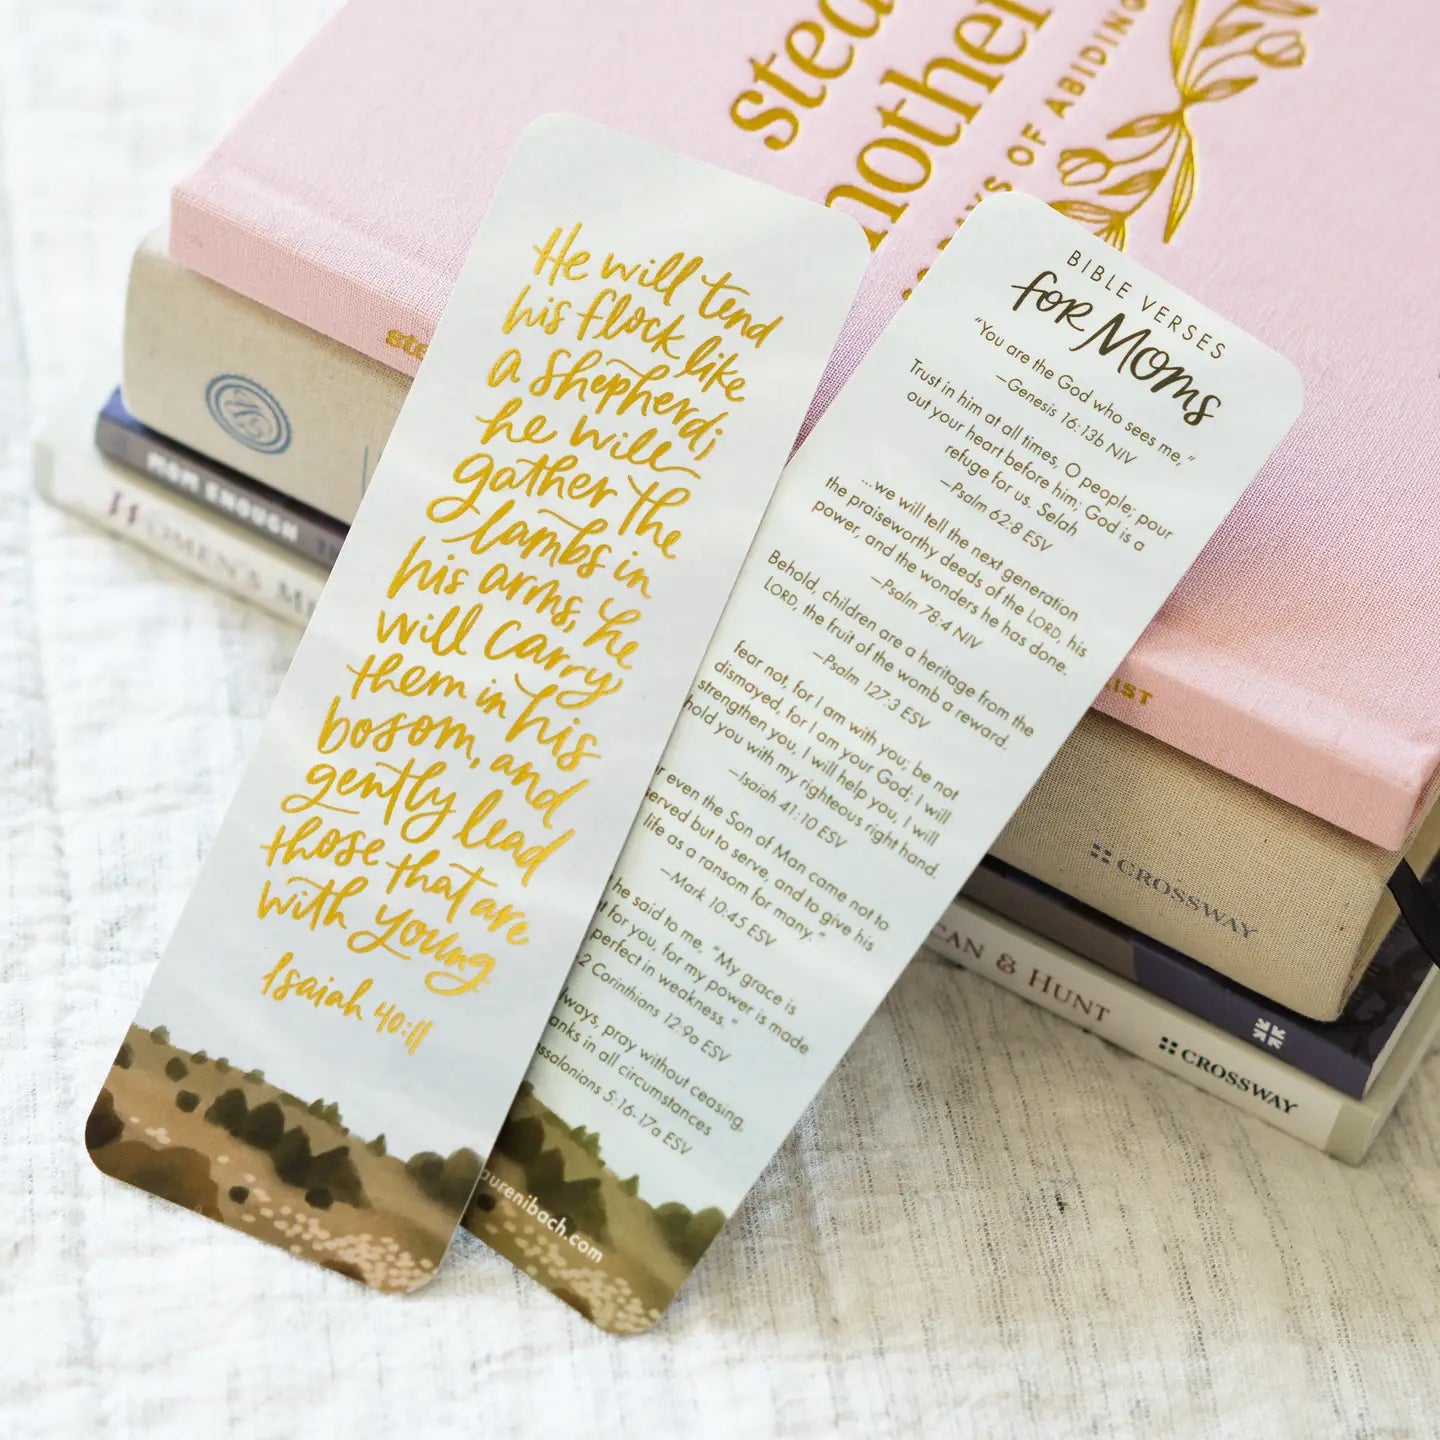 He will tend
his flock like
a shepherd;
he will
gather the
lambs in
his arms, he
will carry
them in his
bosom, and
gently lead
those that are
with young
Isaiah 40:11
BIBLE VERSES
for Moms
"You are the God who sees me,"
—Genesis 16:13b NIV
Trust in him at all times, O people; pour
out your heart before him; God is a
refuge for us. Selah
—Psalm 62:8 ESV
...we will tell the next generation
the praiseworthy deeds of the LORD, his
power, and the wonders he has done.
—Psalm 78:4 NIV
Behold, children are a heritage from the
LORD, the fruit of the womb a reward.
—Psalm 127:3 ESV
fear not, for I am with you; be not
dismayed, for I am your God; I will
strengthen you, I will help you, I will
hold you with my righteous right hand.
—Isaiah 41:10 ESV
even the Son of Man came not to
served but to serve, and to give his
life as a ransom for many."
—Mark 10:45 ESV
he said to me, "My grace is
for you, for my power is made
perfect in weakness."
2 Corinthians 12:9a ESV
pray without ceasing,
in all circumstances
5:16-17a ESV
aurenibach.com
OF ABIDING
MOM ENOUGH
WOMEN'S
CROSSWAY
& HUNT
CROSSWAY